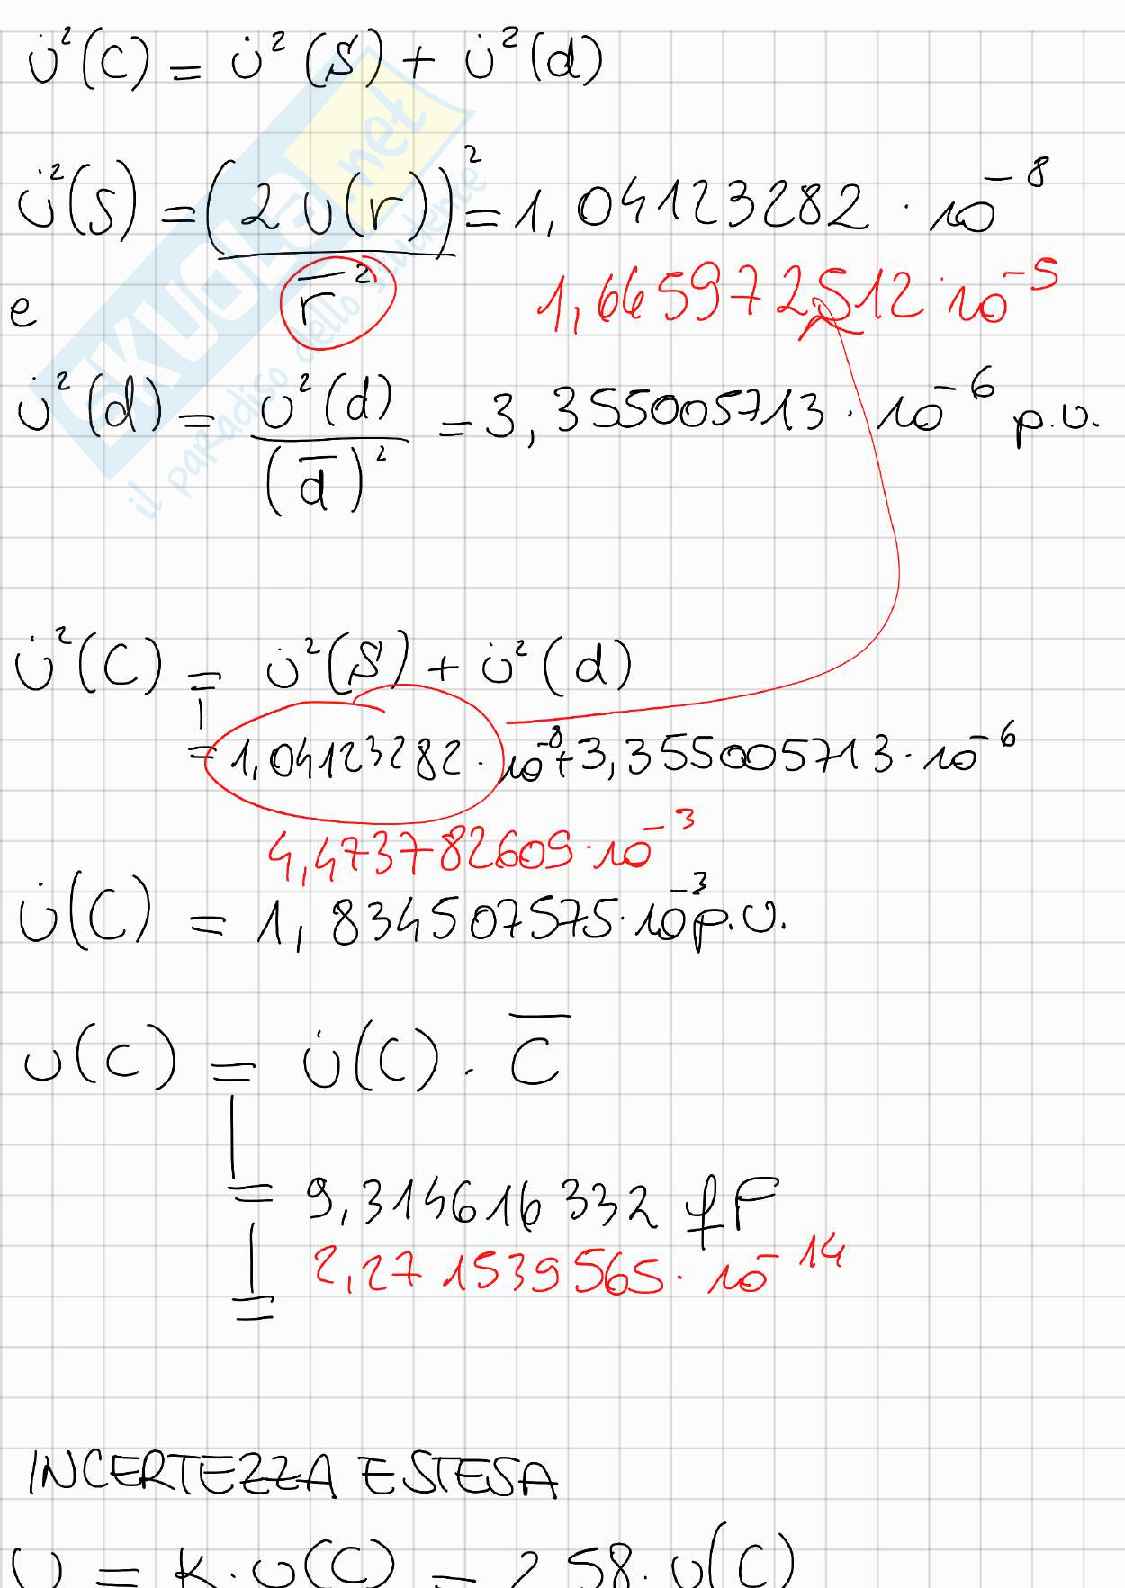 u̇²(C) = u̇²(S) + u̇²(d)
u̇²(S) = (2 u(r))² / r̄² = 1,04123282 · 10⁻⁸
1,665972512 · 10⁻⁵
e
u̇²(d) = u²(d) / (d̄)² = 3,355005713 · 10⁻⁶ p.u.
u̇²(C) = u̇²(S) + u̇²(d)
= 1,04123282 · 10⁻⁸ + 3,355005713 · 10⁻⁶
4,473782609 · 10⁻³
u̇(C) = 1,834507575 · 10⁻³ p.u.
u(C) = u̇(C) · C̄
= 9,314616332 fF
2,271539565 · 10⁻¹⁴
=
INCERTEZZA ESTESA
U = K · u(C) = 2,58 · u(C)
SKUOLA.net
il paradiso dello studente